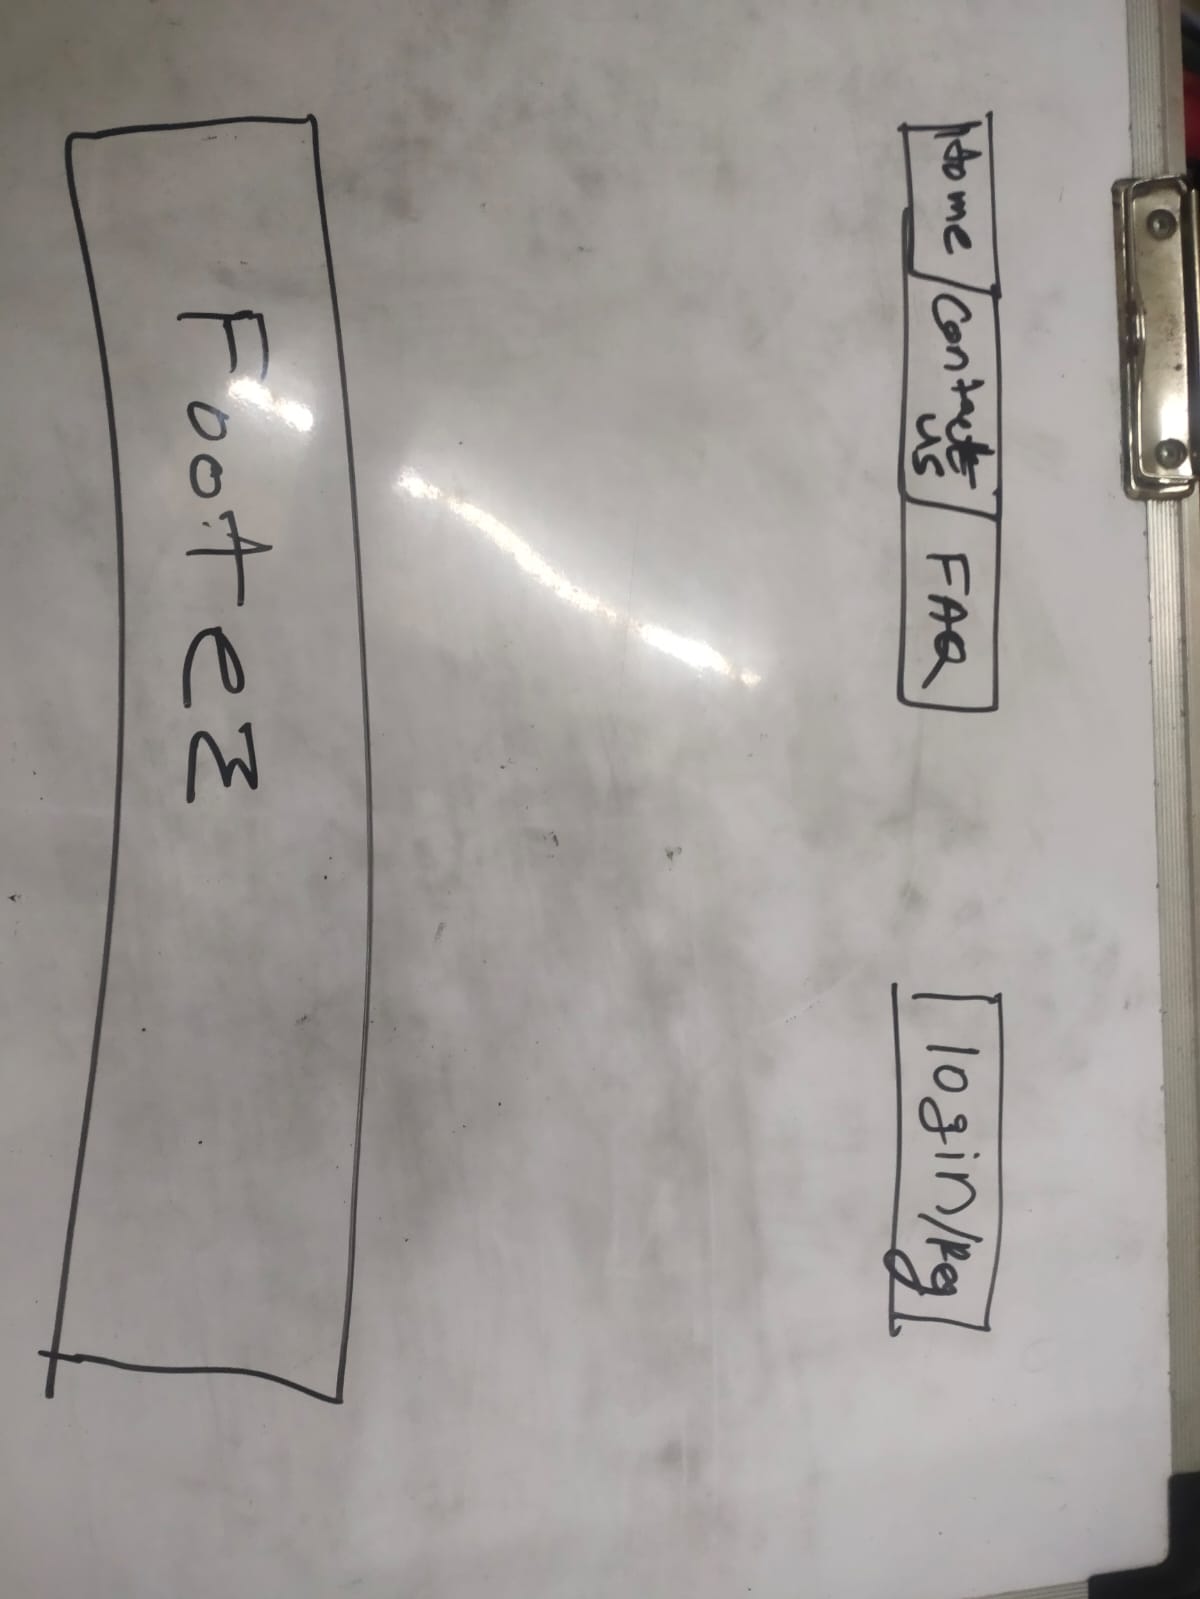 Home
Contact
us
FAQ
login/Reg
Footer